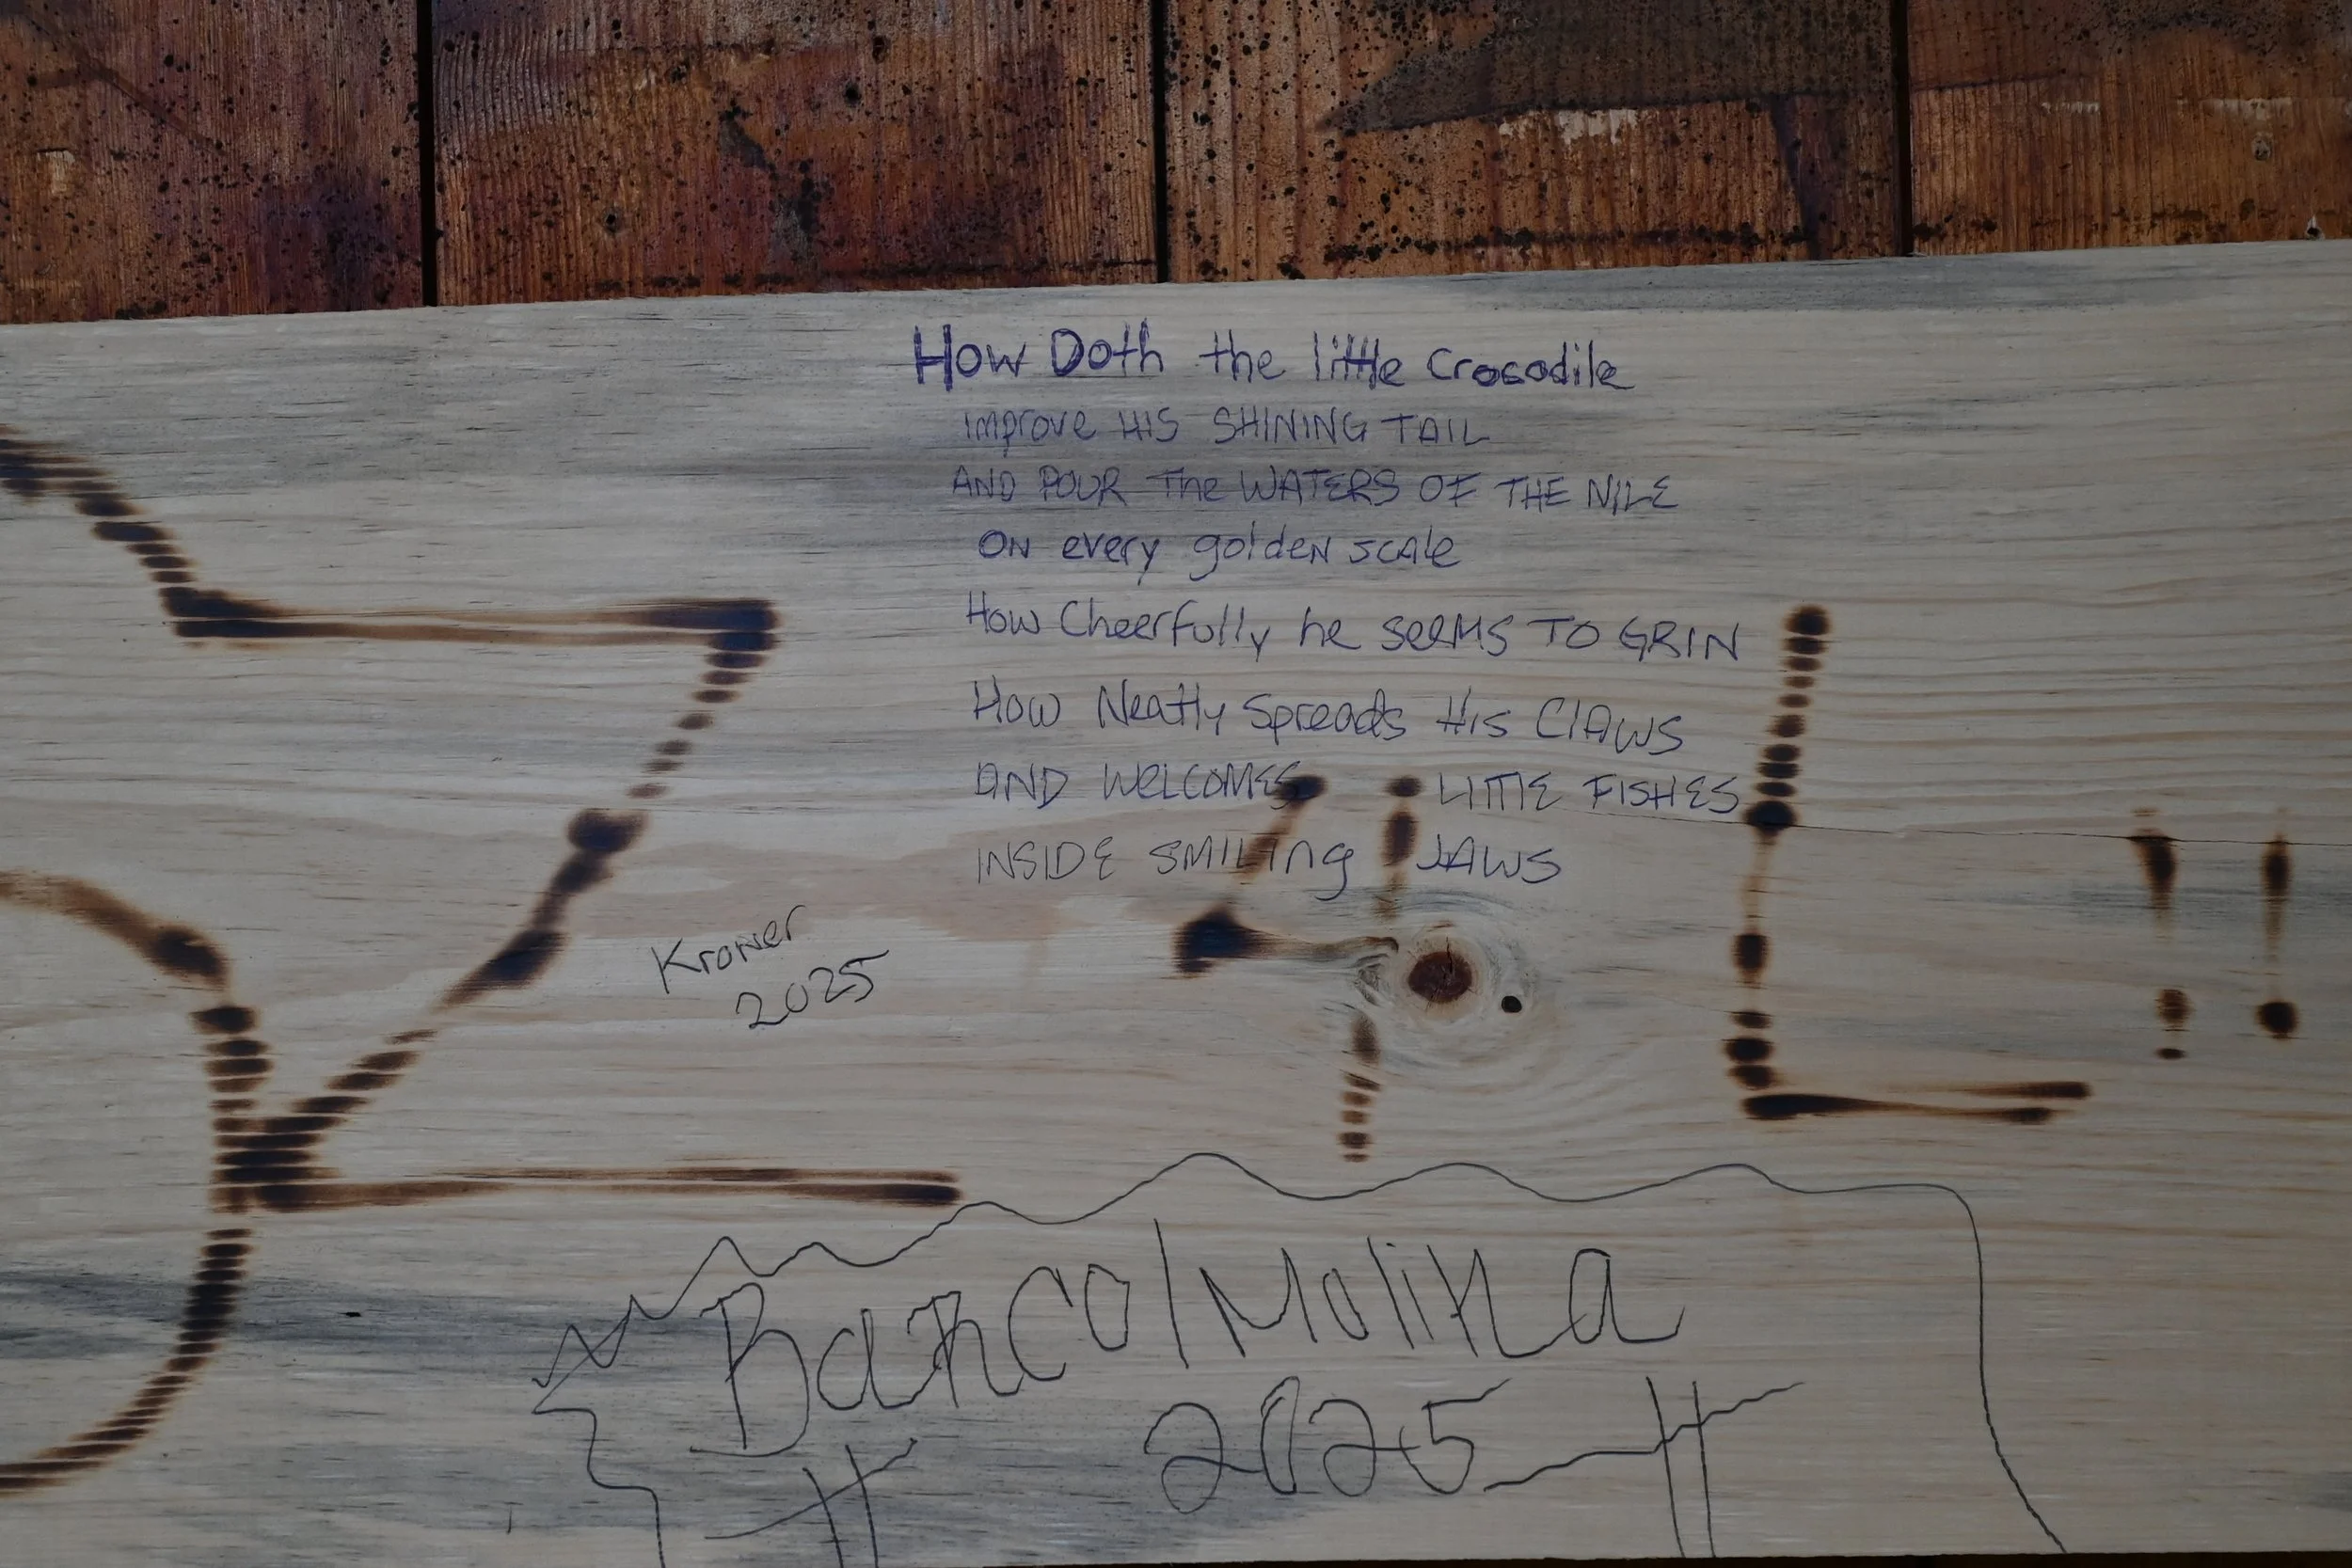 How Doth the little Crocodile
improve HIS SHINING TAIL
AND POUR The WATERS OF THE NILE
ON every golden scale
How Cheerfully he seems TO GRIN
How Neatly Spreads His ClAWS
AND WELCOMES LITTLE FISHES
INSIDE SMILING JAWS
Kroner
2025
Z 4 L !!
Banco/Molina
2025